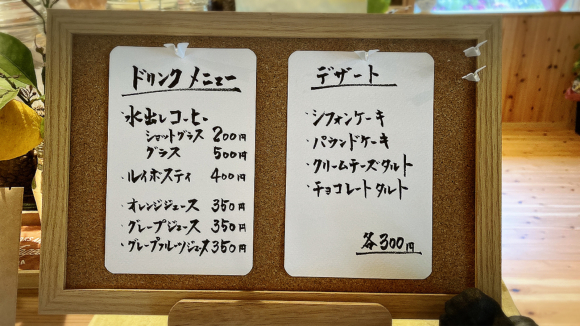 ドリンクメニュー
・水出しコーヒー
ショットグラス 200円
グラス 500円
・ルイボスティ 400円
・オレンジジュース 350円
・グレープジュース 350円
・グレープフルーツジュース 350円
デザート
・シフォンケーキ
・パウンドケーキ
・クリームチーズタルト
・チョコレートタルト
各300円